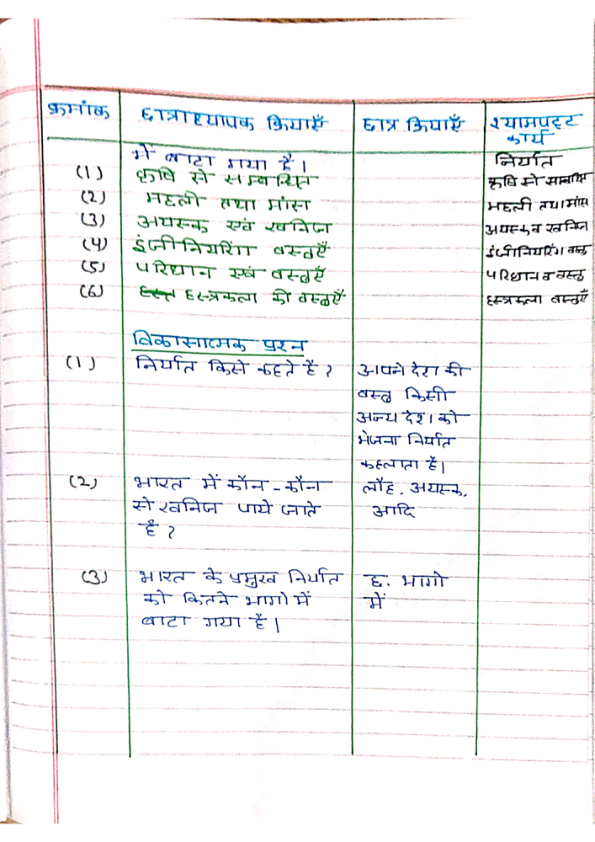 क्रमांक छात्राध्यापक क्रियाएँ छात्र क्रियाएँ श्यामपट्ट
कार्य
में बाटा गया है। निर्यात
(1) कृषि से सम्बन्धित कृषि से सम्बन्धित
(2) मछली तथा मांस मछली तथा मांस
(3) अयस्क एवं खनिज अयस्क व खनिज
(4) इंजीनियरिंग वस्तुएँ इंजीनियरिंग वस्तु
(5) परिधान एवं वस्तुएँ परिधान व वस्तु
(6) हस्त हस्त्रकला की वस्तुएँ हस्त्रकला वस्तुएँ
विकासात्मक प्रश्न
(1) निर्यात किसे कहते है ? अपने देश की
वस्तु किसी
अन्य देश को
भेजना निर्यात
कहलाता है।
(2) भारत में कौन-कौन लौह, अयस्क,
से खनिज पाये जाते आदि
है ?
(3) भारत के प्रमुख निर्यात छ: भागो
को कितने भागो में में
बाटा गया है।